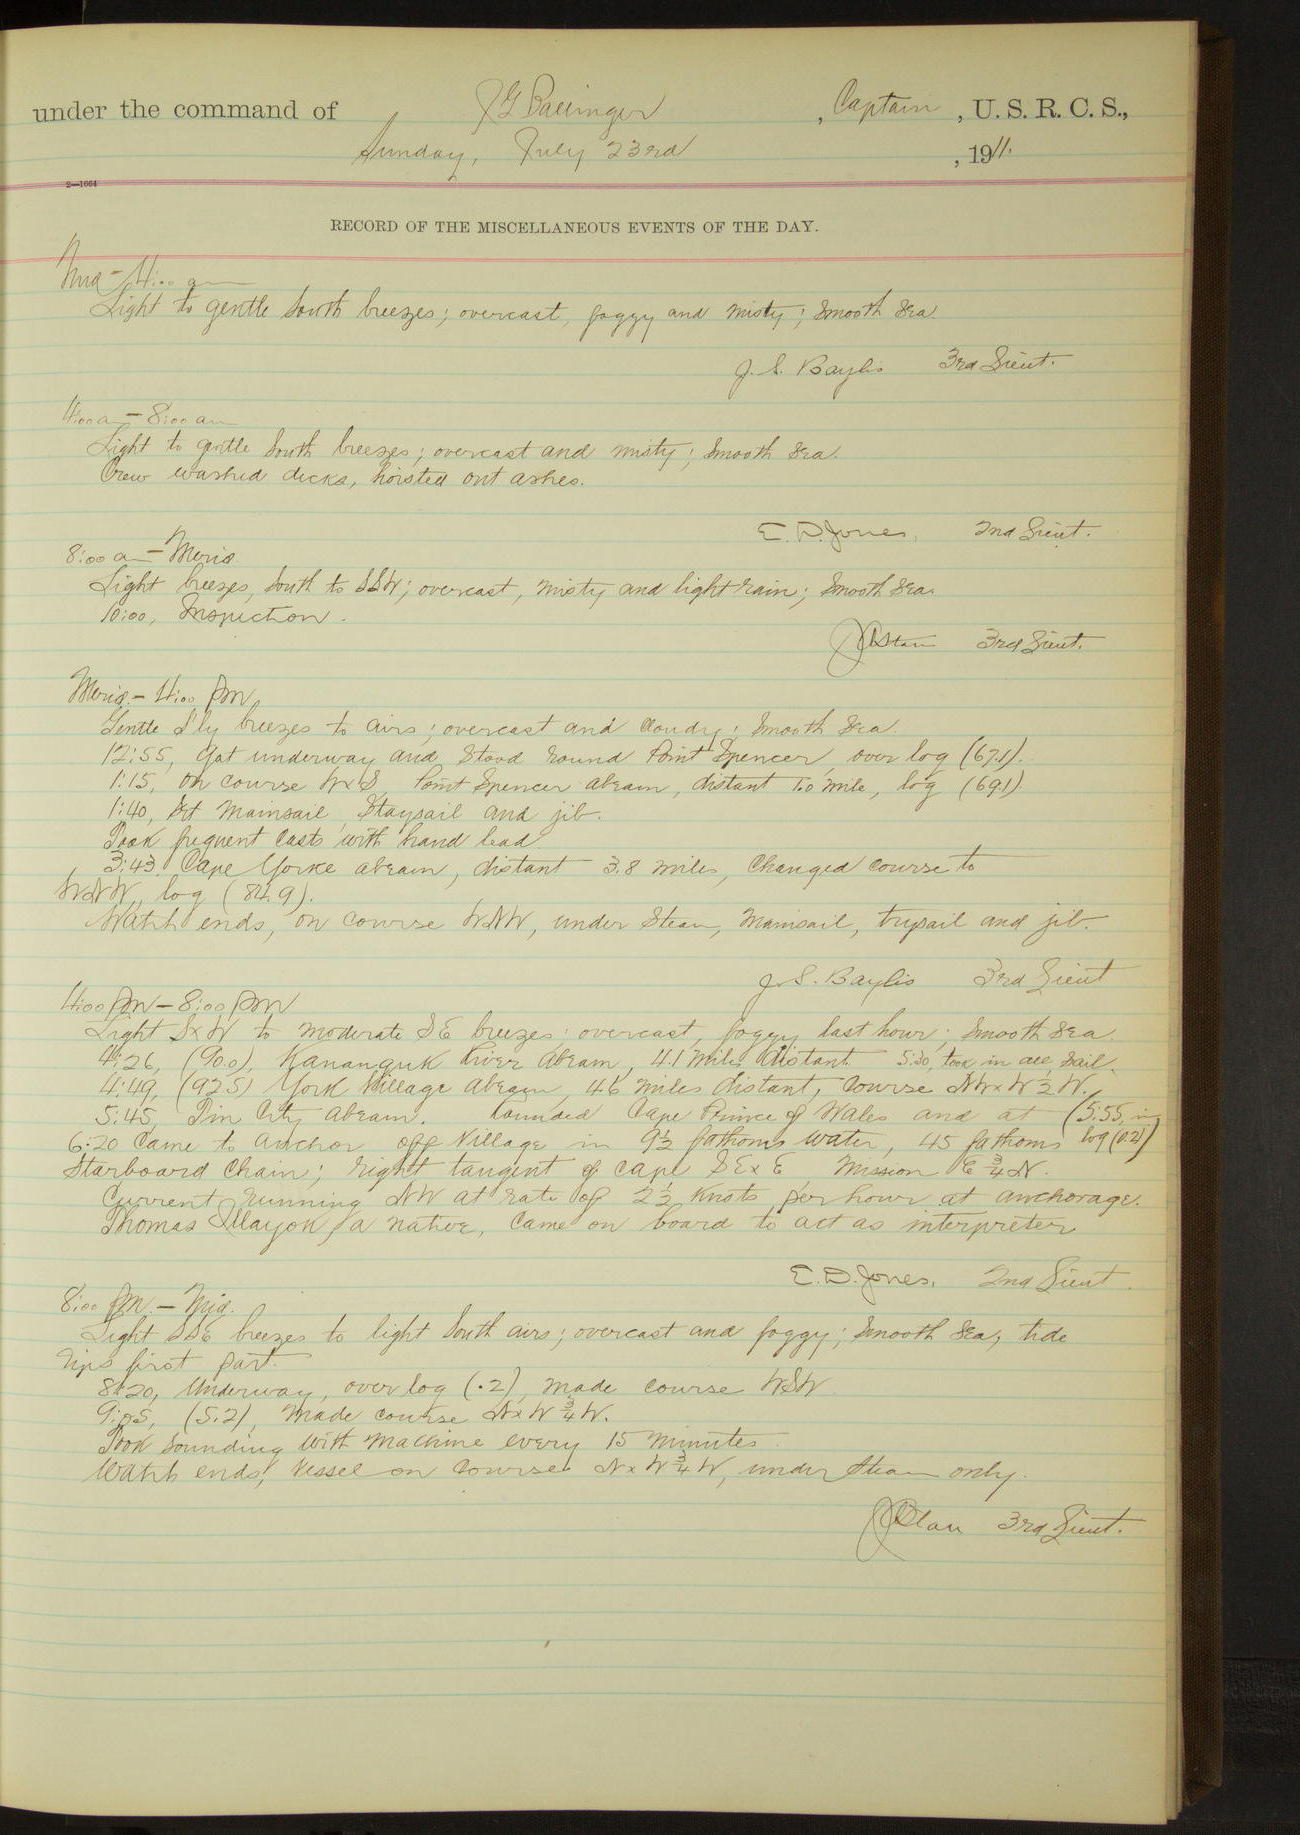 under the command of J G Ballinger, Captain, U. S. R. C. S.,
Sunday, July 23rd, 1911.
2—1664
RECORD OF THE MISCELLANEOUS EVENTS OF THE DAY.
Mid - 4:00 am
Light to gentle South breezes; overcast, foggy and misty; Smooth Sea.
J. S. Baylis 3rd Lieut.
4:00 a - 8:00 am
Light to gentle South breezes; overcast and misty; Smooth Sea.
Crew washed decks, hoisted out ashes.
E. D. Jones, 2nd Lieut.
8:00 a - Merid.
Light breezes, South to SSW; overcast, misty and light rain; Smooth Sea.
10:00, Inspection.
3rd Lieut.
Merid. - 4:00 Pm
Gentle S'ly breezes to airs; overcast and cloudy; Smooth Sea.
12:55, Got underway and Stood round Point Spencer, over log (67.1).
1:15, On course WxS, Point Spencer abeam, distant 1.0 mile, log (69.1).
1:40, Set Mainsail, Staysail and jib.
Took frequent Casts with hand lead.
3:43, Cape Yorke abeam, distant 3.8 miles, Changed course to
WNW, log (84.9).
Watch ends, on course WNW, under Steam, Mainsail, trysail and jib.
J. S. Baylis 3rd Lieut
4:00 Pm - 8:00 Pm
Light SxW to moderate SE breezes; overcast, foggy last hour; Smooth Sea.
4:26, (90.0), Kananguk River abeam, 4.1 miles distant. 5:30, took in all Sail.
4:49, (92.5) York Village abeam, 4.6 miles distant, Course NWxW½W.
5:45, Tin City abeam. Rounded Cape Prince of Wales and at (5:55, in
6:20 Came to anchor off Village in 9½ fathoms water, 45 fathoms log (0.2))
Starboard Chain; right tangent of Cape SExE Mission E¾N.
Current running NW at rate of 2½ Knots per hour at anchorage.
Thomas a native, Came on board to act as interpreter
E. D. Jones, 2nd Lieut.
8:00 Pm. - Mid.
Light SSE breezes to light South airs; overcast and foggy; Smooth Sea; tide
rips first part.
8:20, Underway, over log (.2), made course WSW
9:05, (5.2), Made course NxW¾W.
Took Sounding with Machine every 15 minutes.
Watch ends, Vessel on Course NxW¾W, under Steam only.
3rd Lieut.